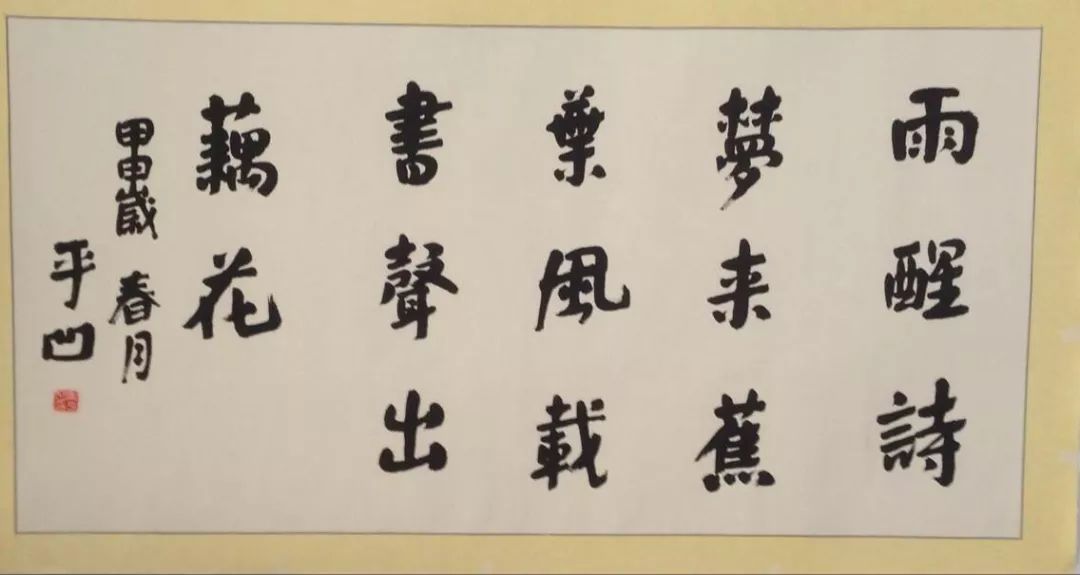 雨醒詩
夢来蕉
葉風載
書聲出
藕花
甲申歲 春月
平凹